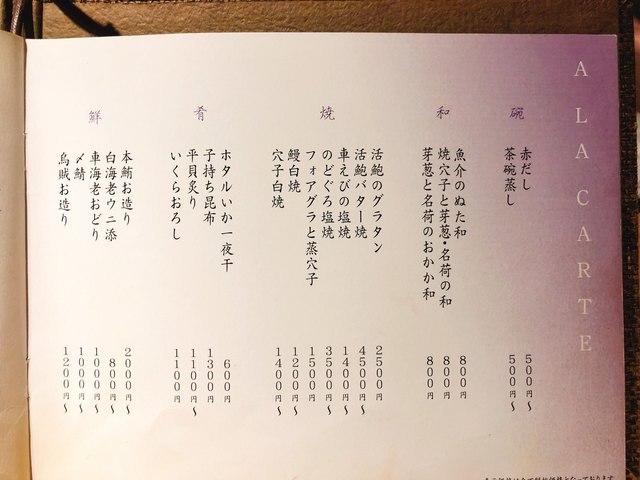 A LA CARTE
碗
赤だし 500円〜
茶碗蒸し 500円〜
和
魚介のぬた和 800円
焼穴子と芽葱・茗荷の和 800円
芽葱と茗荷のおかか和 800円
焼
活鮑のグラタン 2500円
活鮑バター焼 4500円〜
車えびの塩焼 1400円〜
のどぐろ塩焼 3500円〜
フォアグラと蒸穴子 1500円
鰻白焼 1200円〜
穴子白焼 1400円〜
肴
ホタルいか一夜干 600円
子持ち昆布 1300円
平貝炙り 1100円〜
いくらおろし 1100円
鮮
本鮪お造り 2000円〜
白海老ウニ添 800円〜
車海老おどり 1000円〜
〆鯖 1000円〜
烏賊お造り 1200円〜